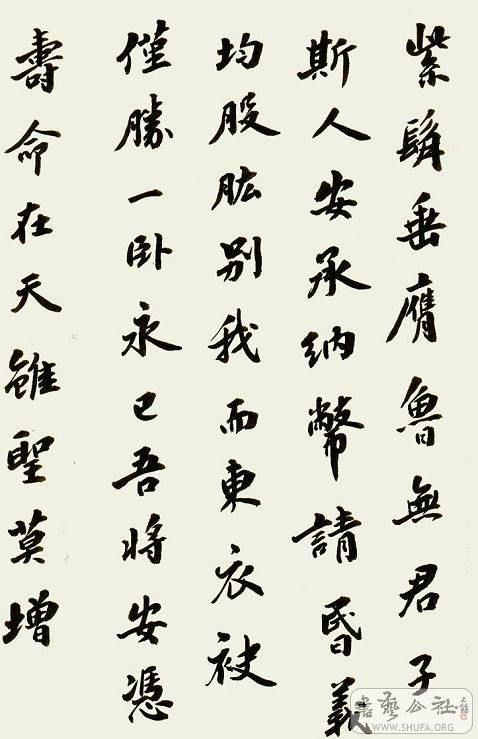 紫髯垂膺魯無君子
斯人安承納幣請昏義
均股肱别我而東衣袂
僅勝一卧永已吾將安憑
壽命在天雖聖莫增
書藝公社
WWW.SHUFA.ORG